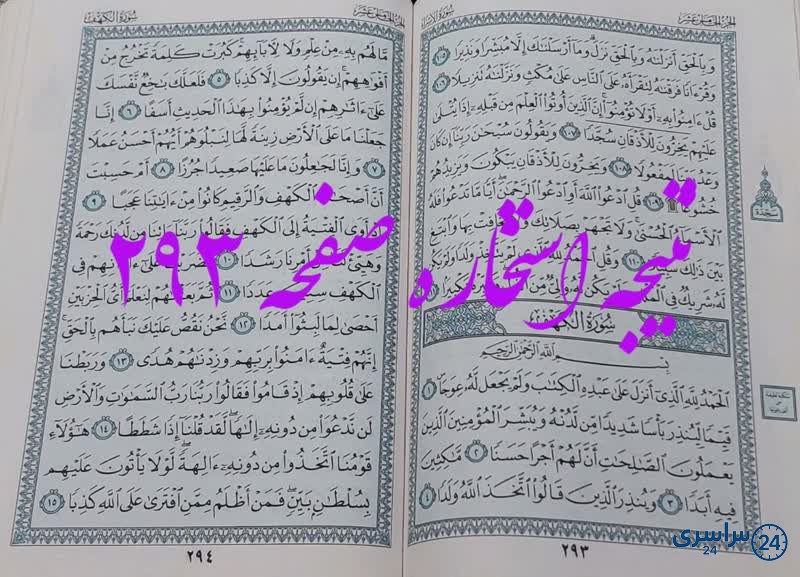 الجزء الخامس عشر
سورة الإسراء
وَبِالْحَقِّ أَنزَلْنَٰهُ وَبِالْحَقِّ نَزَلَ وَمَا أَرْسَلْنَٰكَ إِلَّا مُبَشِّرًا وَنَذِيرًا ١٠٥
وَقُرْءَانًا فَرَقْنَٰهُ لِتَقْرَأَهُ عَلَى النَّاسِ عَلَىٰ مُكْثٍ وَنَزَّلْنَٰهُ تَنزِيلًا ١٠٦
قُلْ ءَامِنُوا بِهِ أَوْ لَا تُؤْمِنُوا إِنَّ الَّذِينَ أُوتُوا الْعِلْمَ مِن قَبْلِهِ إِذَا يُتْلَىٰ
عَلَيْهِمْ يَخِرُّونَ لِلْأَذْقَانِ سُجَّدًا ١٠٧ وَيَقُولُونَ سُبْحَٰنَ رَبِّنَا إِن كَانَ
وَعْدُ رَبِّنَا لَمَفْعُولًا ١٠٨ وَيَخِرُّونَ لِلْأَذْقَانِ يَبْكُونَ وَيَزِيدُهُمْ
خُشُوعًا ۩ ١٠٩ قُلِ ادْعُوا اللَّهَ أَوِ ادْعُوا الرَّحْمَٰنَ أَيًّا مَّا تَدْعُوا فَلَهُ
الْأَسْمَاءُ الْحُسْنَىٰ وَلَا تَجْهَرْ بِصَلَاتِكَ وَلَا تُخَافِتْ بِهَا وَابْتَغِ
بَيْنَ ذَٰلِكَ سَبِيلًا ١١٠ وَقُلِ الْحَمْدُ لِلَّهِ الَّذِي لَمْ يَتَّخِذْ وَلَدًا وَلَمْ يَكُن
لَّهُ شَرِيكٌ فِي الْمُلْكِ وَلَمْ يَكُن لَّهُ وَلِيٌّ مِّنَ الذُّلِّ وَكَبِّرْهُ تَكْبِيرًا
سُورَةُ الْكَهْفِ
بِسْمِ اللَّهِ الرَّحْمَٰنِ الرَّحِيمِ
الْحَمْدُ لِلَّهِ الَّذِي أَنزَلَ عَلَىٰ عَبْدِهِ الْكِتَٰبَ وَلَمْ يَجْعَل لَّهُ عِوَجًا ١
قَيِّمًا لِّيُنذِرَ بَأْسًا شَدِيدًا مِّن لَّدُنْهُ وَيُبَشِّرَ الْمُؤْمِنِينَ الَّذِينَ
يَعْمَلُونَ الصَّٰلِحَٰتِ أَنَّ لَهُمْ أَجْرًا حَسَنًا ٢ مَّٰكِثِينَ
فِيهِ أَبَدًا ٣ وَيُنذِرَ الَّذِينَ قَالُوا اتَّخَذَ اللَّهُ وَلَدًا ٤
٢٩٣
سجدة
الجزء الخامس عشر
سورة الكهف
مَّا لَهُم بِهِ مِنْ عِلْمٍ وَلَا لِآبَائِهِمْ كَبُرَتْ كَلِمَةً تَخْرُجُ مِنْ
أَفْوَٰهِهِمْ إِن يَقُولُونَ إِلَّا كَذِبًا ٥ فَلَعَلَّكَ بَٰخِعٌ نَّفْسَكَ
عَلَىٰ ءَاثَٰرِهِمْ إِن لَّمْ يُؤْمِنُوا بِهَٰذَا الْحَدِيثِ أَسَفًا ٦ إِنَّا
جَعَلْنَا مَا عَلَى الْأَرْضِ زِينَةً لَّهَا لِنَبْلُوَهُمْ أَيُّهُمْ أَحْسَنُ عَمَلًا
٧ وَإِنَّا لَجَٰعِلُونَ مَا عَلَيْهَا صَعِيدًا جُرُزًا ٨ أَمْ حَسِبْتَ
أَنَّ أَصْحَٰبَ الْكَهْفِ وَالرَّقِيمِ كَانُوا مِنْ ءَايَٰتِنَا عَجَبًا ٩
إِذْ أَوَى الْفِتْيَةُ إِلَى الْكَهْفِ فَقَالُوا رَبَّنَا ءَاتِنَا مِن لَّدُنكَ رَحْمَةً
وَهَيِّئْ لَنَا مِنْ أَمْرِنَا رَشَدًا ١٠ فَضَرَبْنَا عَلَىٰ ءَاذَانِهِمْ فِي
الْكَهْفِ سِنِينَ عَدَدًا ١١ ثُمَّ بَعَثْنَٰهُمْ لِنَعْلَمَ أَيُّ الْحِزْبَيْنِ
أَحْصَىٰ لِمَا لَبِثُوا أَمَدًا ١٢ نَّحْنُ نَقُصُّ عَلَيْكَ نَبَأَهُم بِالْحَقِّ
إِنَّهُمْ فِتْيَةٌ ءَامَنُوا بِرَبِّهِمْ وَزِدْنَٰهُمْ هُدًى ١٣ وَرَبَطْنَا
عَلَىٰ قُلُوبِهِمْ إِذْ قَامُوا فَقَالُوا رَبُّنَا رَبُّ السَّمَٰوَٰتِ وَالْأَرْضِ
لَن نَّدْعُوَا مِن دُونِهِ إِلَٰهًا لَّقَدْ قُلْنَا إِذًا شَطَطًا ١٤ هَٰؤُلَاءِ
قَوْمُنَا اتَّخَذُوا مِن دُونِهِ ءَالِهَةً لَّوْلَا يَأْتُونَ عَلَيْهِم
بِسُلْطَٰنٍ بَيِّنٍ فَمَنْ أَظْلَمُ مِمَّنِ افْتَرَىٰ عَلَى اللَّهِ كَذِبًا ١٥
٢٩٤
نتیجه استخاره صفحه ۲۹۳
سراسری
24
24